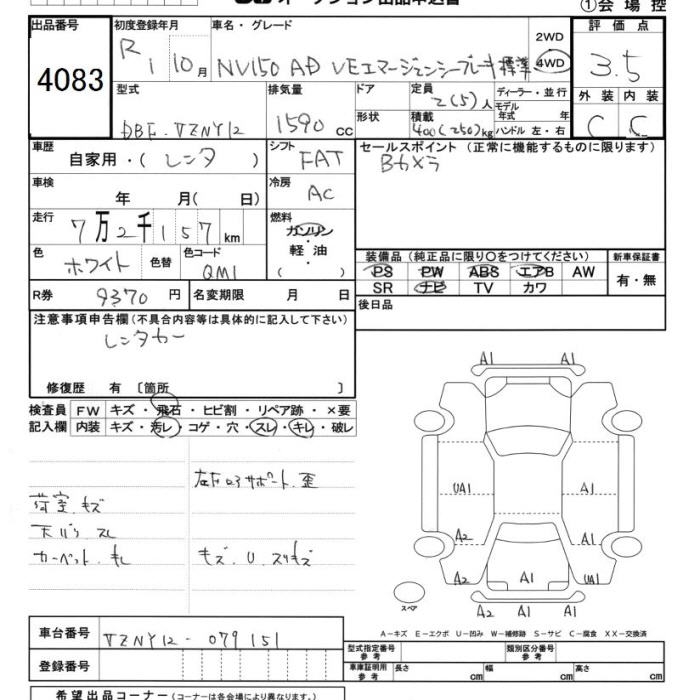 ①会場控
出品番号
4083
初度登録年月
R1 10月
車名・グレード
NV150 AD VEエマージェンシーブレーキ 標準
2WD
4WD
評価点
3.5
外装 内装
C C
型式
DBF-VZNY12
排気量
1590 cc
ドア
形状
定員
2(5)人
積載
400(250)kg
ディーラー・並行
モデル年式 年
ハンドル 左・右
車歴
自家用・(レンタ)
シフト
FAT
セールスポイント (正常に機能するものに限ります)
Bカメラ
車検
年 月( 日)
冷房
AC
走行
7万2千157km
燃料
ガソリン
軽油
( )
色
ホワイト
色替
色コード
QM1
装備品 (純正品に限り○をつけてください)
PS PW ABS エアB AW
SR ナビ TV カワ
新車保証書
有・無
R券 9370円
名変期限 月 日
後日品
注意事項申告欄(不具合内容等は具体的に記入して下さい)
レンタカー
修復歴 有 〔箇所 〕
検査員記入欄
FW キズ・飛石・ヒビ割・リペア跡・×要
内装 キズ・汚レ・コゲ・穴・スレ・キレ・破レ
左Fロアサポート.歪
荷室.キズ
天バリ スレ
カーペット.キレ
キズ.U.スリキズ
A1
A1
UA1
A1
A2
A1
A2
A1
UA1
A2 A1 A1
スペア
A-キズ E-エクボ U-凹み W-補修跡 S-サビ C-腐食 XX-交換済
車台番号
VZNY12-079151
登録番号
型式指定番号参考
類別区分番号参考
車庫証明用参考
長さ cm
幅 cm
高さ cm
希望出品コーナー(コーナーは会場により異なります。)